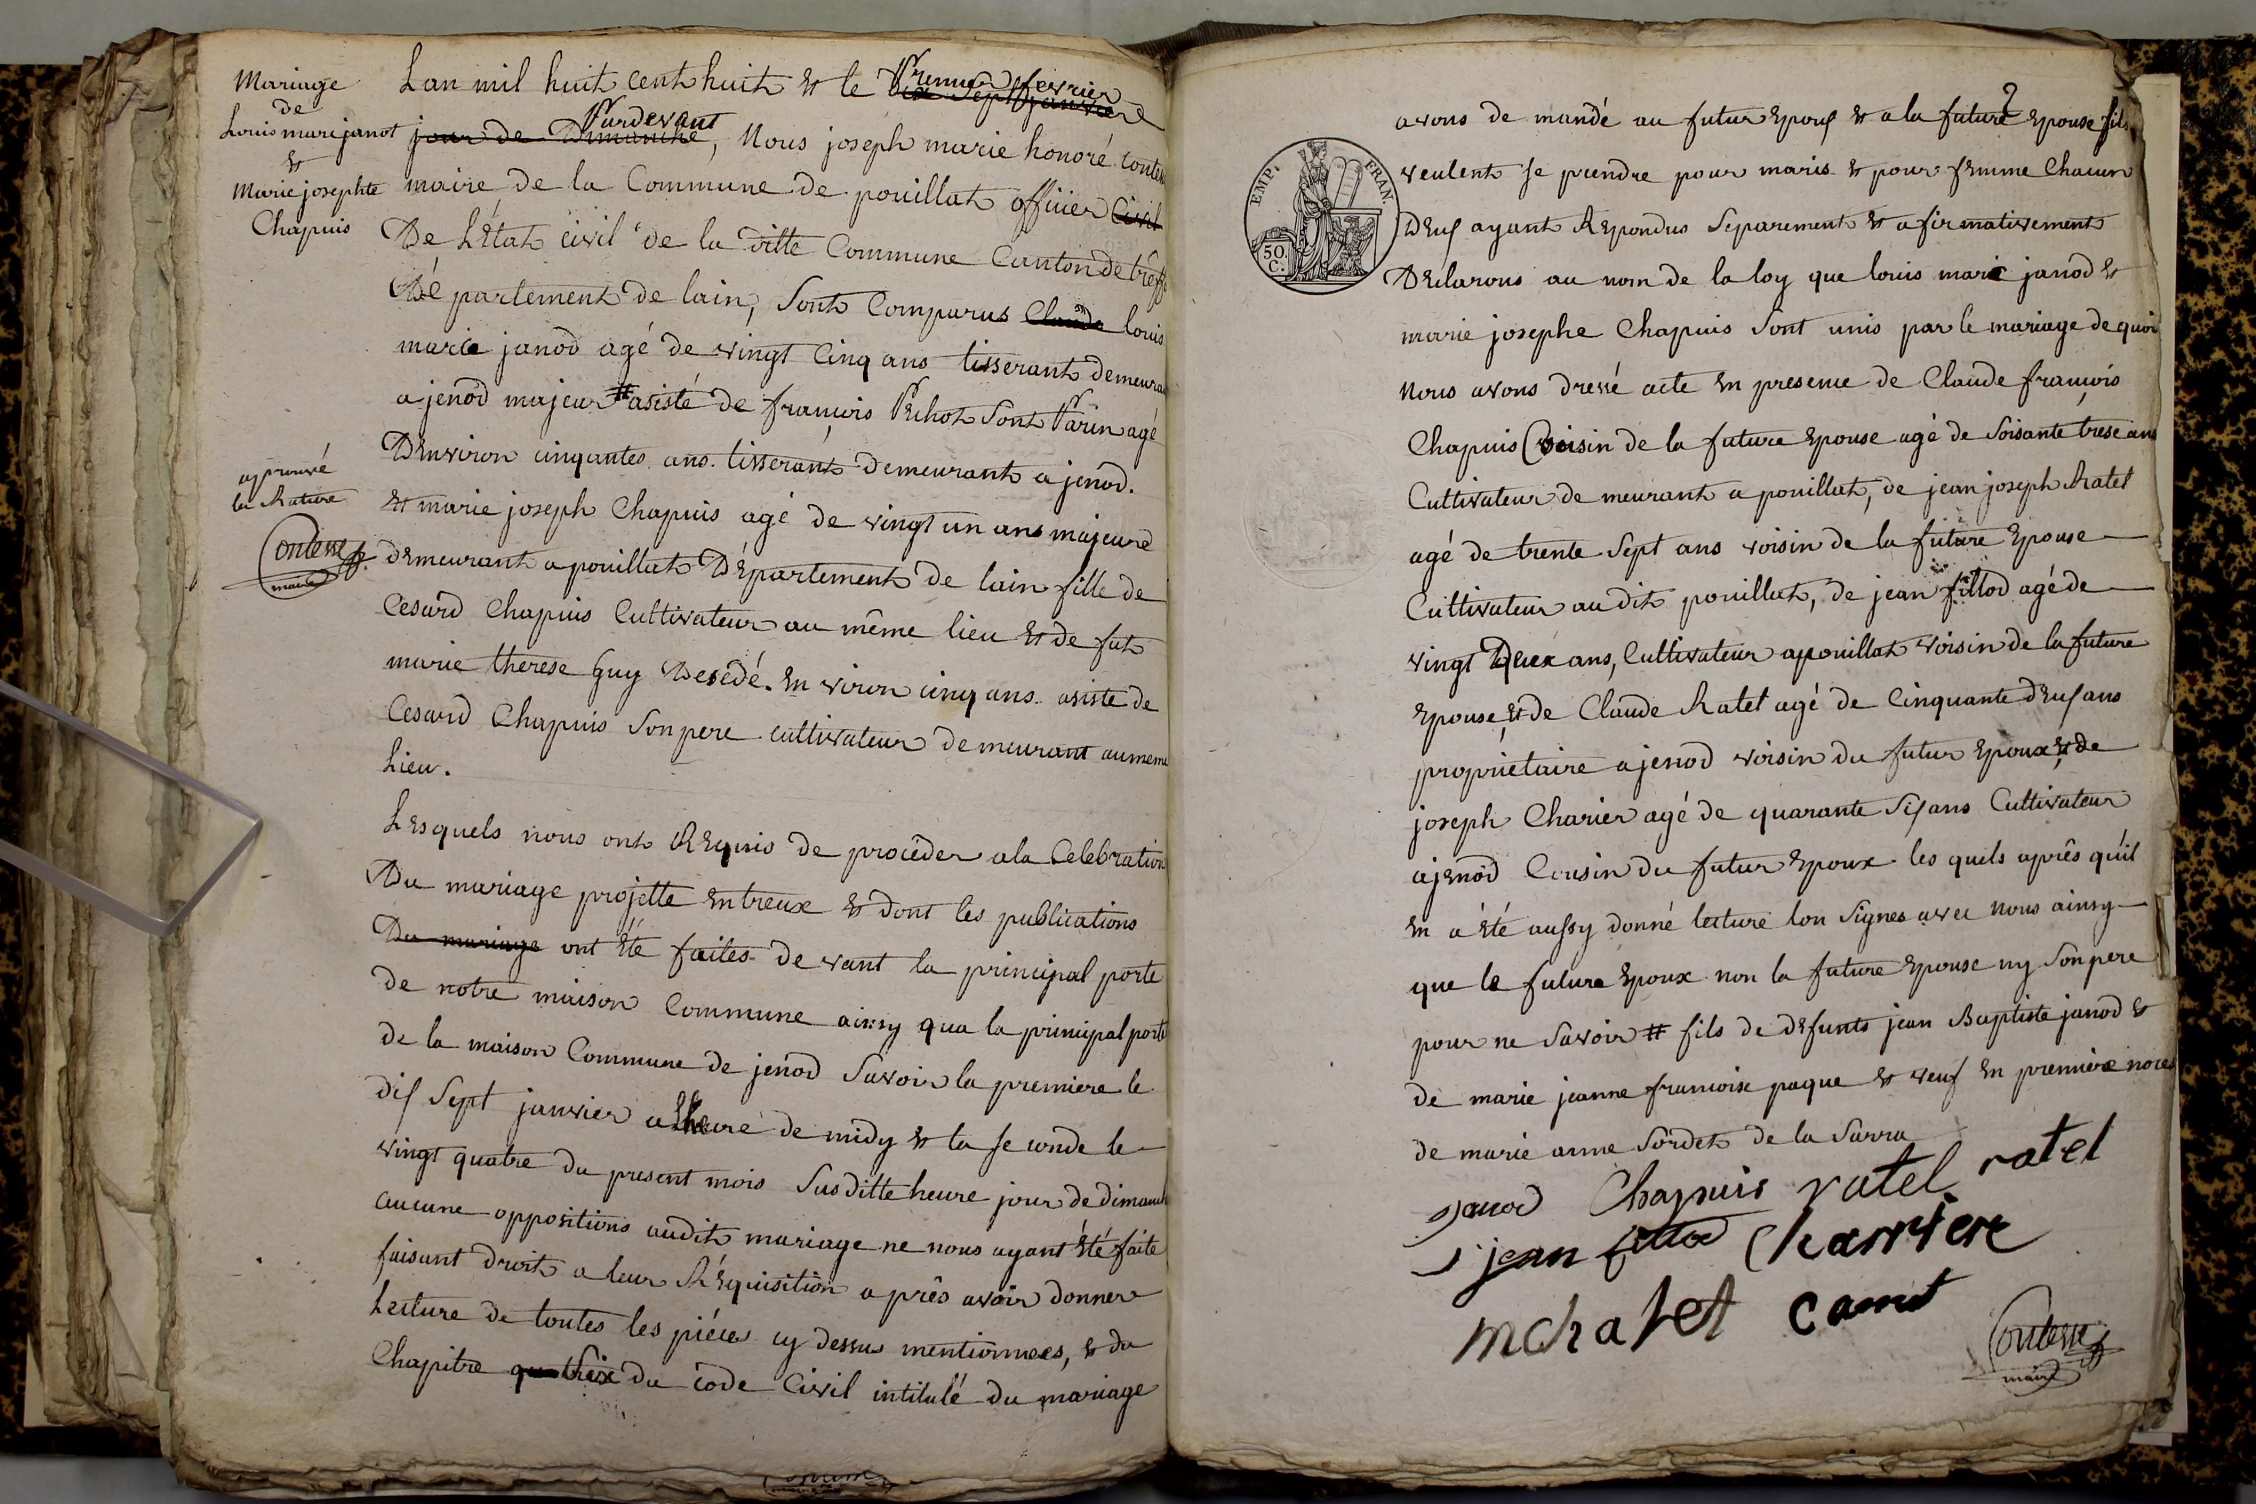 Mariage
de
Louis marie janot
et
Marie josephte
Chapuis
approuvé
la Rature
Contesse
maire
Lan mil huit cent huit et le Premier fevrier
Pardevant
jour de Dimanche, Nous joseph marie honoré Contesse
maire de la Commune de pouillat officier Civil
De LÉtat civil de la ditte Commune Canton de treffo
Département de lain, Sont Comparus Claude louis
marie janod agé de vingt Cinq ans tisserant demeurant
a jenod majeur # asisté de francois Pichot Sont Parin agé
Denviron cinqantes ans tisserant demeurant a jenod.
et marie joseph Chapuis agé de vingt un ans majeure
demeurant a pouillat Département de lain fille de
Cesard Chapuis Cultivateur au même lieu et de fut
marie therese Guy Desedé en viron cinq ans asiste de
Cesard Chapuis Son pere cultivateur demeurant au meme
Lieu.
Lesquels nous ont Requis de procéder a la Celebration
Du mariage projette entreux et dont les publications
Du mariage ont été faites devant la principal porte
de notre maison Commune ainsy qua la principal porte
de la maison Commune de jenod Savoir la premiere le
dis Sept janvier a Lheure de midy et la Seconde le
vingt quatre du present mois Susditte heure jour de dimanch
aucune oppositions audit mariage ne nous ayant été faite
faisant droit a leur Réquisition après avoir donner
Lecture de toutes les piéces cy dessus mentionnees, et du
Chapitre Six du code Civil intitulé du mariage
EMP. FRAN.
50.
C.
avons de mandé au futur Epous et a la future Epouse sils
veulent se prendre pour maris et pour femme Chacun
Deus ayant Repondus Separement et afirmativement
Declarons au nom de la loy que louis marie janod et
marie josephe Chapuis Sont unis par le mariage de quoi
Nous avons dressé acte en presence de Claude francois
Chapuis voisin de la future Epouse agé de Soisante trese ans
Cultivateur demeurant a pouillat, de jean joseph Ratel
agé de trente Sept ans voisin de la future Epouse
Cultivateur audit pouillat, de jean fillod agé de
vingt Deux ans, Cultivateur a pouillat voisin de la future
Epouse, et de Claude Ratel agé de Cinquante deus ans
propriétaire a jenod voisin du futur Epoux, et de
joseph Charier agé de quarante Sis ans Cultivateur
a jenod Cousin du futur Epoux les quels après qu'il
en a été aussy donné lecture lon Signes avec nous ainsy
que le future Epoux non la future Epouse ny Son pere
pour ne Savoir # fils de defunts jean Baptiste janod et
de marie jeanne francoise paque et veuf en premiere noces
de marie anne Sordet de la Sarra
janod Chapuis ratel ratel
jean fillod Charriere
Contesse
maire